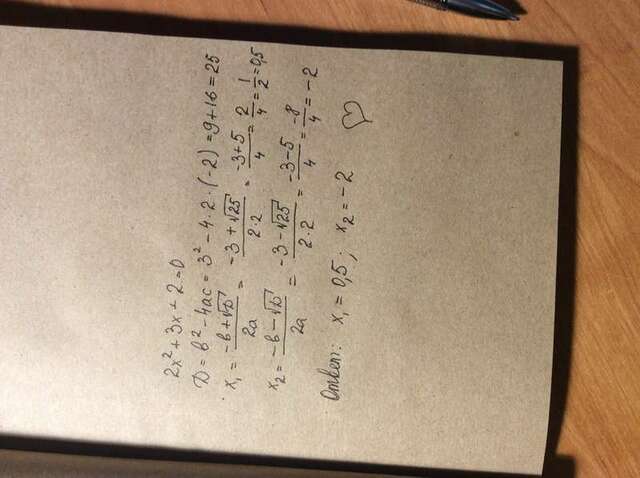 2x² + 3x + 2 = 0
D = b² - 4ac = 3² - 4 · 2 · (-2) = 9 + 16 = 25
x₁ = (-b + √D)/(2a) = (-3 + √25)/(2 · 2) = (-3 + 5)/4 = 2/4 = 1/2 = 0,5
x₂ = (-b - √D)/(2a) = (-3 - √25)/(2 · 2) = (-3 - 5)/4 = -8/4 = -2
Ответ: x₁ = 0,5 ; x₂ = -2